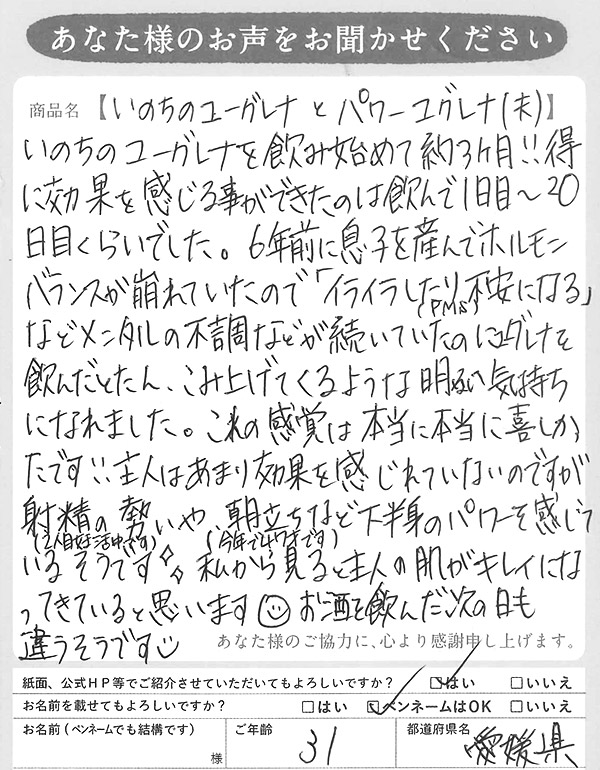 あなた様のお声をお聞かせください
商品名【いのちのユーグレナ と パワーユグレナ(末)】
いのちのユーグレナを飲み始めて約3ヶ月!!得
に効果を感じる事ができたのは飲んで1日目〜20
日目くらいでした。6年前に息子を産んでホルモン
バランスが崩れていたので「イライラしたり不安になる」
(PMS)
などメンタルの不調などが続いていたのにユグレナを
飲んだとたん、こみ上げてくるような明るい気持ち
になれました。これの感覚は本当に本当に喜しかっ
たです!!主人はあまり効果を感じれていないのですが
射精の勢いや、朝立ちなど下半身のパワーを感じて
(2人目妊活中です) (今年で41才です)
いるそうです 私から見ると主人の肌がキレイにな
ってきていると思います お酒を飲んだ次の日も
違うそうです
あなた様のご協力に、心より感謝申し上げます。
紙面、公式HP等でご紹介させていただいてもよろしいですか? ☑はい □いいえ
お名前を載せてもよろしいですか? □はい ☑ペンネームはOK □いいえ
お名前(ペンネームでも結構です) 様 ご年齢 31 都道府県名 愛媛県